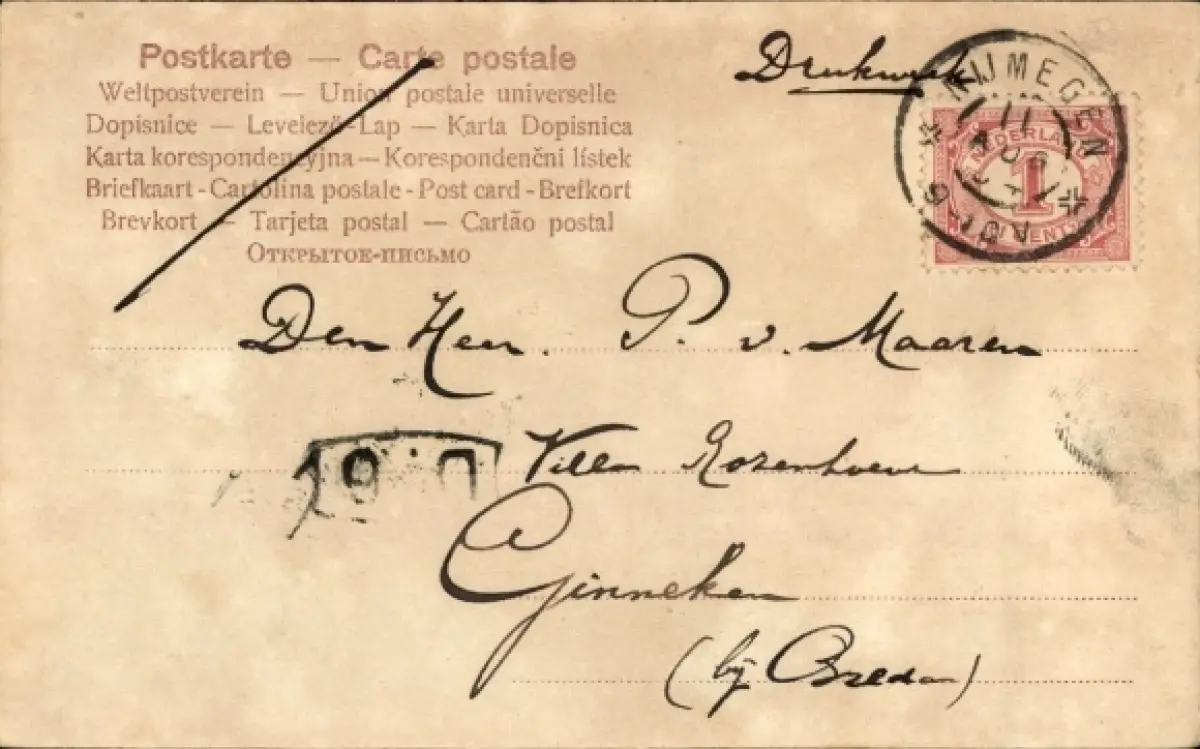 Postkarte — Carte postale
Weltpostverein — Union postale universelle
Dopisnice — Levelező-Lap — Karta Dopisnica
Karta korespondencyjna — Korespondenčni lístek
Briefkaart - Cartolina postale - Post card - Brefkort
Brevkort — Tarjeta postal — Cartão postal
Открытое-письмо
Drukwerk
NIJMEGEN
NEDERLAND
1
CENT
Den Heer P. v. Maaren
Villa
Ginneken
(bij Breda)